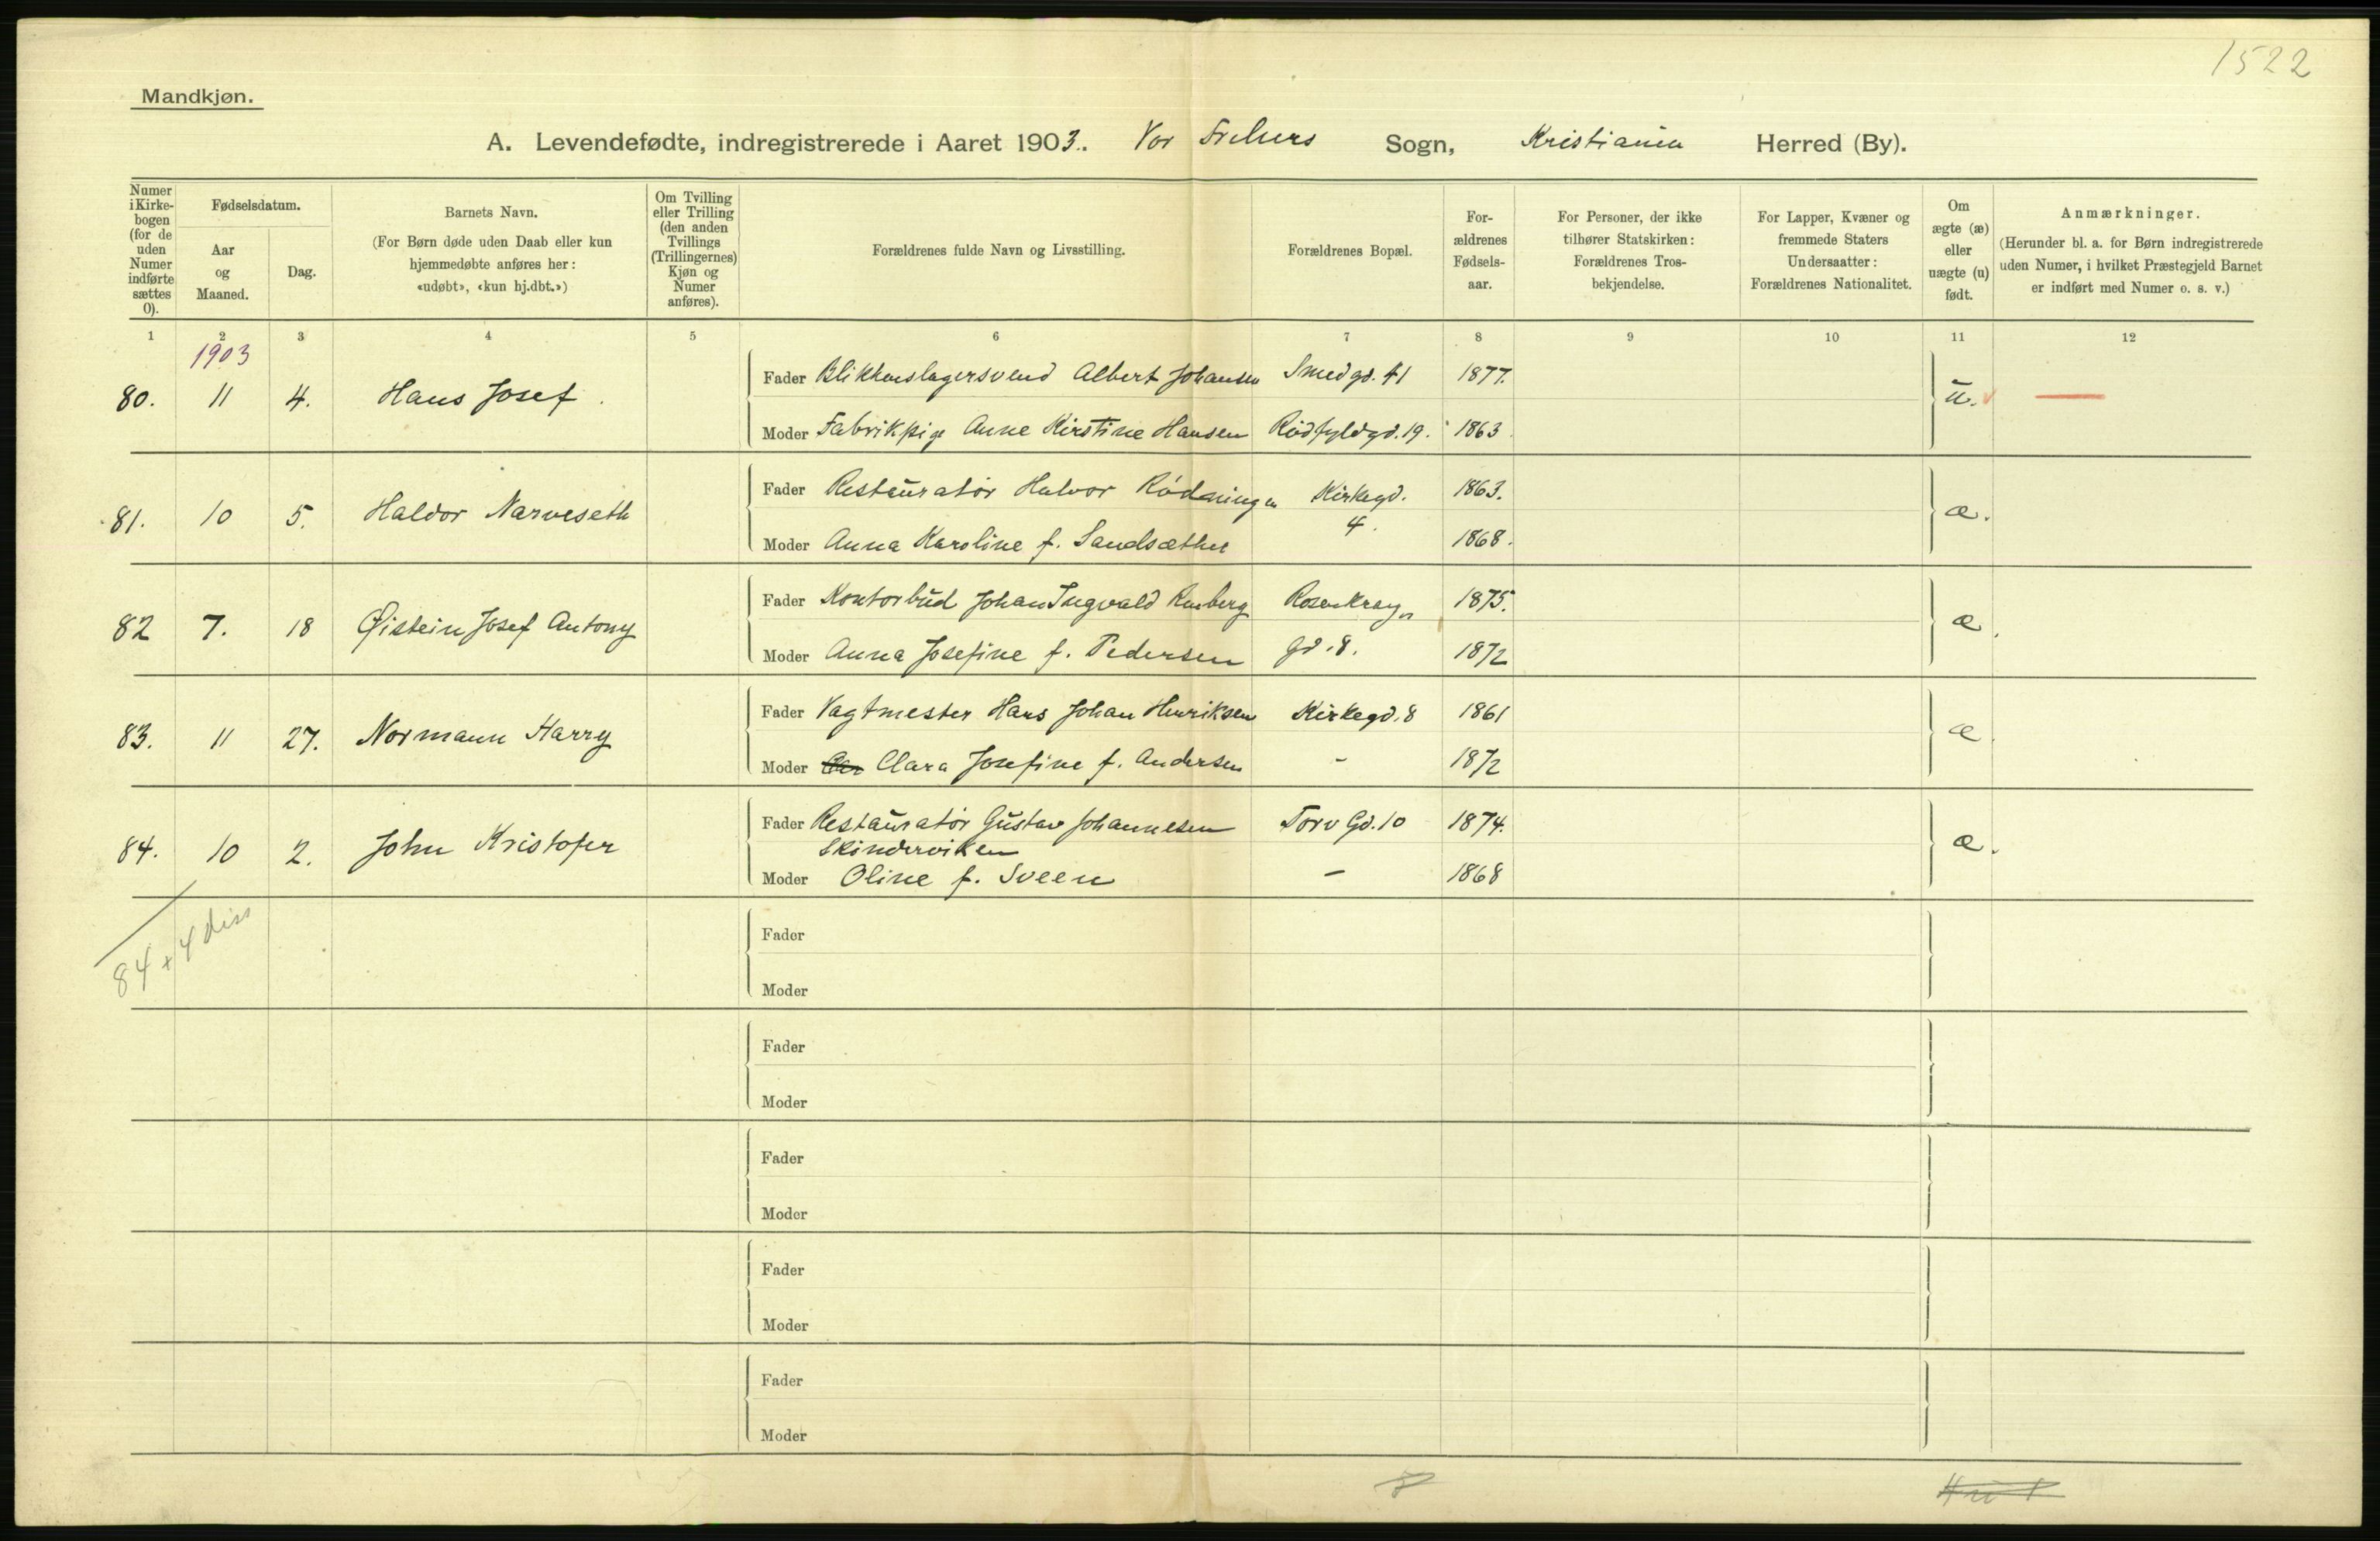 1522
Mandkjøn.
A. Levendefødte, indregistrerede i Aaret 1903. Vor Frelsers Sogn, Kristiania Herred (By).
Numer i Kirke-bogen (for de uden Numer indførte sættes 0).
Fødselsdatum.
Aar og Maaned.
Dag.
Barnets Navn.
(For Børn døde uden Daab eller kun hjemmedøbte anføres her: «udøbt», «kun hj.dbt.»)
Om Tvilling eller Trilling (den anden Tvillings (Trillingernes) Kjøn og Numer anføres).
Forældrenes fulde Navn og Livsstilling.
Forældrenes Bopæl.
For-ældrenes Fødsels-aar.
For Personer, der ikke tilhører Statskirken: Forældrenes Tros-bekjendelse.
For Lapper, Kvæner og fremmede Staters Undersaatter: Forældrenes Nationalitet.
Om ægte (æ) eller uægte (u) født.
Anmærkninger.
(Herunder bl. a. for Børn indregistrerede uden Numer, i hvilket Præstegjeld Barnet er indført med Numer o. s. v.)
1 2 3 4 5 6 7 8 9 10 11 12
1903
80. 11 4. Hans Josef. Fader Blikkenslagersvend Albert Johansen Smedgd. 41 1877. u.
Moder Fabrikpige Anne Kirstine Hansen Rødfyldgd. 19. 1863
81. 10 5. Haldor Narveseth Fader Restauratør Halvor Rødningen Kirkegd. 1863. æ.
4.
Moder Anna Karoline f. Sandsæther 1868.
82 7. 18 Øistein Josef Antony Fader Kontorbud Johan Ingvald Rosberg 1875. æ.
Moder Anna Josefine f. Pedersen gd. 8. 1872
83. 11 27. Normann Harry Fader Vagtmester Hans Johan Henriksen Kirkegd. 8 1861 æ.
Moder Clara Josefine f. Andersen - 1872
84. 10 2. John Kristofer Fader Restauratør Gustav Johannesen Torv Gd. 10 1874. æ.
Skinderviken
Moder Oline f. Sveen - 1868
84 + 4 diss
Fader
Moder
Fader
Moder
Fader
Moder
Fader
Moder
Fader
Moder